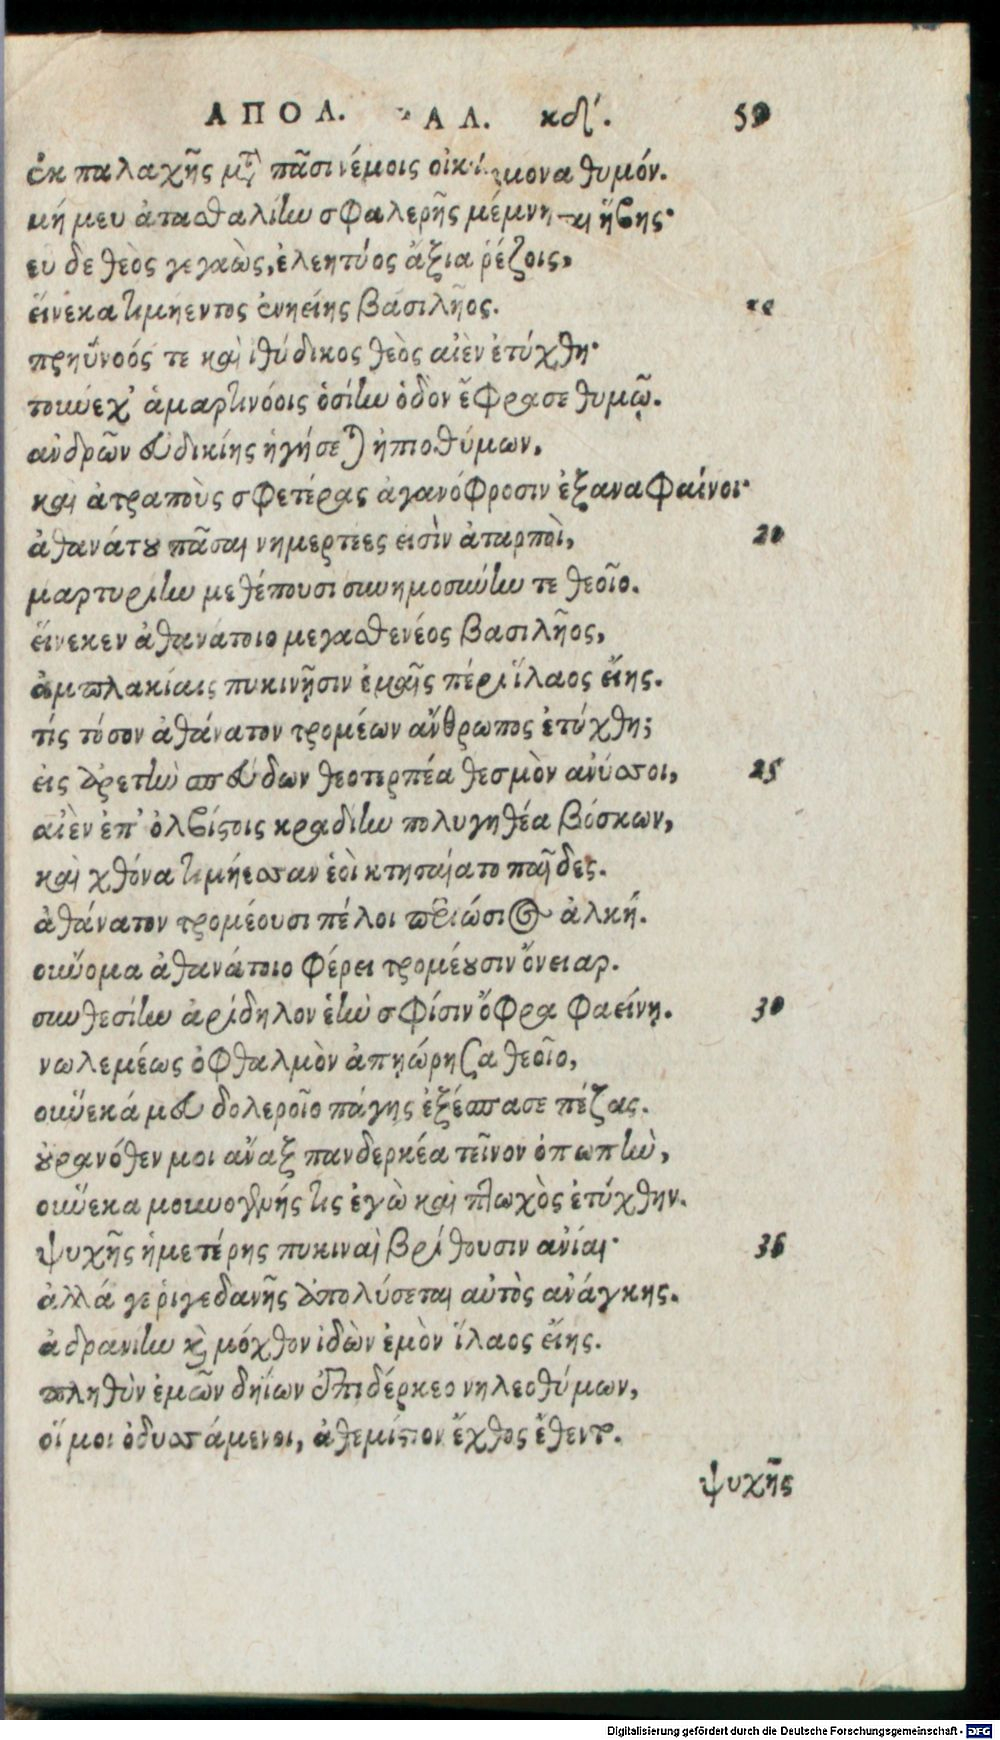 ΑΠΟΛ. ΑΛ. κδ΄. 59
ἐκ παλαχῆς μετὰ πᾶσι νέμοις οἰκτίρμονα θυμόν.
μή μευ ἀτασθαλίην σφαλερῆς μέμνησαι ἥβης·
ευ δε θεὸς γεγαὼς, ἐλεητύος ἄξια ῥέζοις,
εἵνεκα τιμήεντος ἐνηείης βασιλῆος.
πρηΰνοός τε καὶ ἰθύδικος θεὸς αἰὲν ἐτύχθη·
τοὔνεχ' ἁμαρτινόοις ὁσίην ὁδὸν ἔφρασε θυμῷ.
ἀνδρῶν εὐδικίης ἡγήσεται ἠπιοθύμων,
καὶ ἀτραποὺς σφετέρας ἀγανόφροσιν ἐξαναφαίνοι·
ἀθανάτου πᾶσαι νημερτέες εἰσὶν ἀταρποὶ, 20
μαρτυρίην μεθέπουσι συνημοσύνην τε θεοῖο.
εἵνεκεν ἀθανάτοιο μεγασθενέος βασιλῆος,
ἀμπλακίαις πυκινῇσιν ἐμαῖς πέρι ἵλαος εἴης.
τίς τόσον ἀθάνατον τρομέων ἄνθρωπος ἐτύχθη;
εἰς ἀρετὴν σπεύδων θεοτερπέα θεσμὸν ἀνύσσοι, 25
αἰὲν ἐπ' ὀλβίστοις κραδίην πολυγηθέα βόσκων,
καὶ χθόνα τιμήεσσαν ἑοὶ κτησαίατο παῖδες.
ἀθάνατον τρομέουσι πέλοι περιώσιος ἀλκή.
οὔνομα ἀθανάτοιο φέρει τρομέουσιν ὄνειαρ.
συνθεσίην ἀρίδηλον ἑὴν σφίσιν ὄφρα φαείνῃ. 30
νωλεμέως ὀφθαλμὸν ἀπῃώρησα θεοῖο,
οὕνεκά μευ δολεροῖο πάγης ἐξέσπασε πέζας.
οὐρανόθεν μοι ἄναξ πανδερκέα τεῖνον ὀπωπὴν,
οὕνεκα μουνογενής τις ἐγὼ καὶ πτωχὸς ἐτύχθην.
ψυχῆς ἡμετέρης πυκιναὶ βρίθουσιν ἀνίαι· 35
ἀλλά γε ῥιγεδανῆς ἀπολύσεται αὐτὸς ἀνάγκης.
ἀδρανίην καὶ μόχθον ἰδὼν ἐμὸν ἵλαος εἴης.
πληθὺν ἐμῶν δηΐων ἐπιδέρκεο νηλεοθύμων,
οἵ μοι ὀδυσσάμενοι, ἀθεμίστιον ἔχθος ἔθεντο.
ψυχῆς
Digitalisierung gefördert durch die Deutsche Forschungsgemeinschaft - DFG